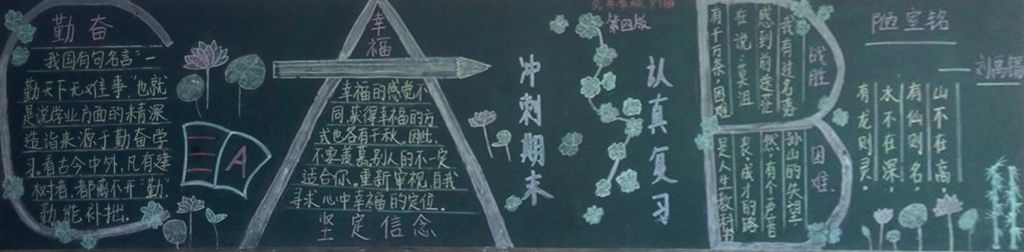 勤奋
我国有句名言:"一
勤天下无难事"也就
是说学业方面的精深
造诣来源于勤奋学
习。看古今中外,凡有建
树者,都离不开"勤"
勤能补拙。
幸福
幸福的感觉不
同,获得幸福的方
式也各有千秋,刚出
不要羡慕别人的不一定
适合你。重新审视自我
寻求心中幸福的定位。
坚定信念
冲刺期末
第四版
认真复习
战胜
困难
我有过名落
孙山的失望
感到前途茫
然,有个声音
在说,莫沮
丧,成才的路
有千万条,困难
是人生教科书
陋室铭
刘禹锡
山不在高,
有仙则名。
水不在深,
有龙则灵。